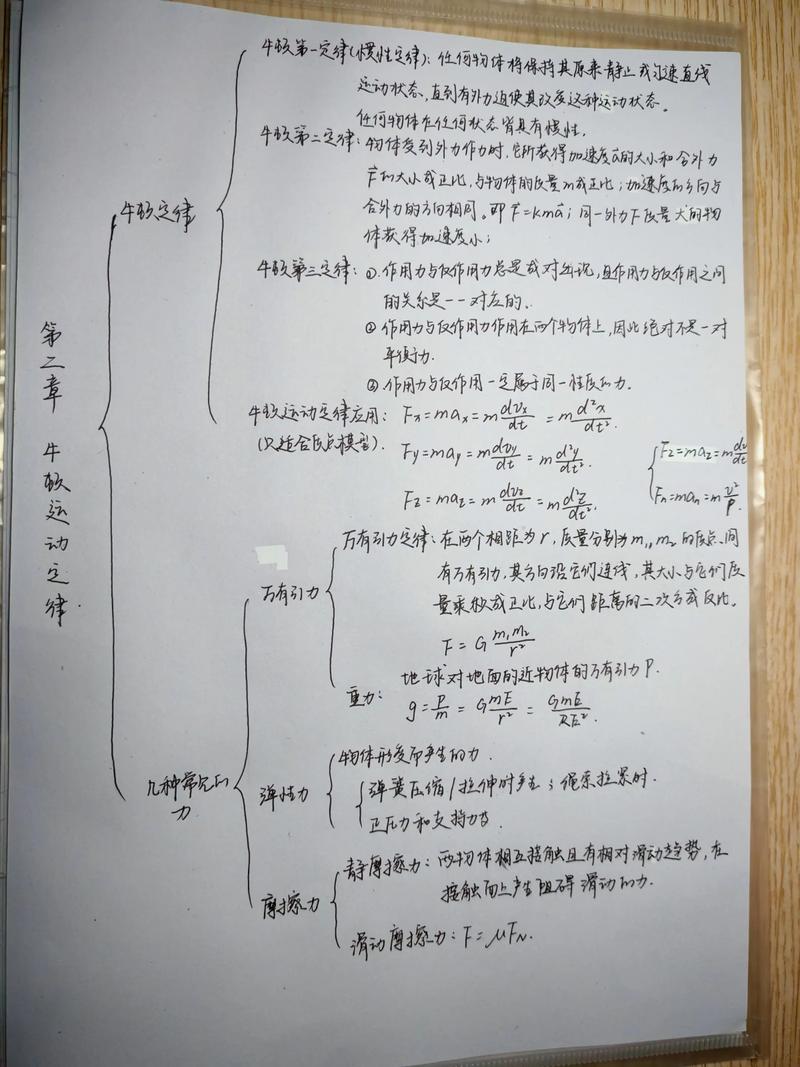 牛顿第一定律(惯性定律)：任何物体将保持其原来静止或匀速直线
运动状态，直到有外力迫使其改变这种运动状态。
任何物体在任何状态皆具有惯性。
牛顿第二定律：物体受到外力作力时，它所获得加速度a⃗的大小和合外力
F⃗的大小成正比，与物体的质量m成正比；加速度的方向与
合外力的方向相同。即 F⃗=kma⃗；同一外力下质量大的物
体获得加速度小；
牛顿定律
牛顿第三定律：①.作用力与反作用力总是成对出现，且作用力与反作用之间
的关系是一一对应的。
②作用力与反作用力作用在两个物体上，因此绝对不是一对
平衡力.
③.作用力与反作用一定属于同一性质的力.
第二章 牛顿运动定律.
牛顿运动定律应用： Fx=max=m dvx/dt = m d²x/dt².
(只适合质点模型). Fy=may=m dvy/dt = m d²y/dt².
Fz=maz=m dvz/dt = m d²z/dt².
Fz=maz=m dv/dt
Fn=man=m v²/ρ.
万有引力定律：在两个相距为r，质量分别为m1,m2的质点间
有万有引力，其方向沿它们连线，其大小与它们质
量乘积成正比，与它们距离的二次方成反比。
万有引力
F = G m1m2/r²
地球对地面的近物体的万有引力P.
重力： g=P/m = G mE/r² = GmE/RE².
几种常见的
力
物体形变而产生的力.
弹性力
弹簧压缩/拉伸时产生；绳索拉紧时.
正压力和支持力等.
静摩擦力：两物体相互接触且有相对滑动趋势，在
接触面上产生阻碍滑动的力.
摩擦力
滑动摩擦力：F=μFN.